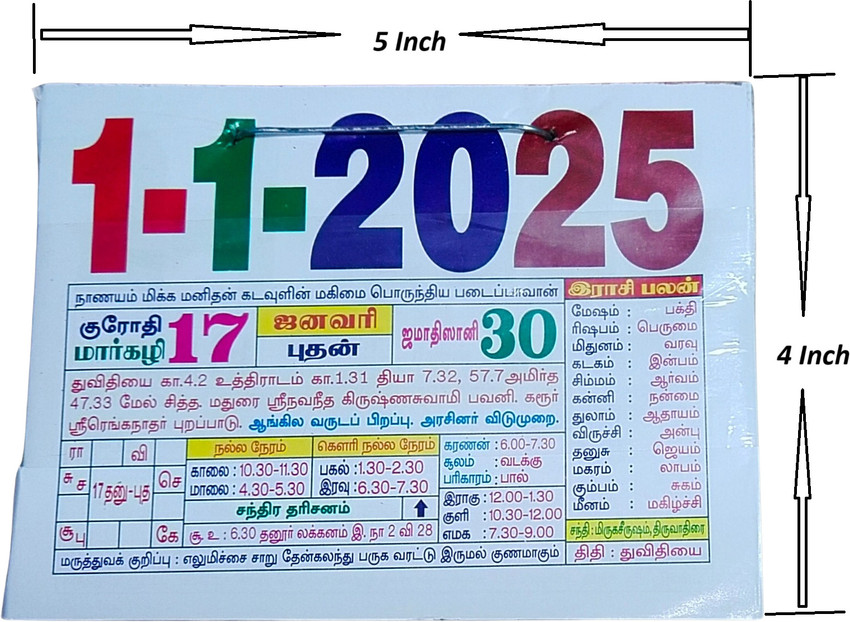 5 Inch
4 Inch
1-1-2025
நாணயம் மிக்க மனிதன் கடவுளின் மகிமை பொருந்திய படைப்பாவான்
குரோதி
மார்கழி 17
ஜனவரி
புதன்
ஜமாதிஸானி 30
துவிதியை கா.4.2 உத்திராடம் கா.1.31 தியா 7.32, 57.7 அமிர்த
47.33 மேல் சித்த. மதுரை ஸ்ரீநவநீத கிருஷ்ணசுவாமி பவனி. கரூர்
ஸ்ரீரெங்கநாதர் புறப்பாடு. ஆங்கில வருடப் பிறப்பு. அரசினர் விடுமுறை.
ரா வி
சு ச 17தனு-புத செ
சூ பு கே
நல்ல நேரம்
காலை : 10.30-11.30
மாலை : 4.30-5.30
கௌரி நல்ல நேரம்
பகல் : 1.30-2.30
இரவு : 6.30-7.30
சந்திர தரிசனம்
சூ. உ : 6.30 தனூர் லக்கனம் இ. நா 2 வி 28
கரணன் : 6.00-7.30
சூலம் : வடக்கு
பரிகாரம் : பால்
இராகு : 12.00-1.30
குளி : 10.30-12.00
எமக : 7.30-9.00
மருத்துவக் குறிப்பு : எலுமிச்சை சாறு தேன்கலந்து பருக வரட்டு இருமல் குணமாகும்
இராசி பலன்
மேஷம் : பக்தி
ரிஷபம் : பெருமை
மிதுனம் : வரவு
கடகம் : இன்பம்
சிம்மம் : ஆர்வம்
கன்னி : நன்மை
துலாம் : ஆதாயம்
விருச்சி : அன்பு
தனுசு : ஜெயம்
மகரம் : லாபம்
கும்பம் : சுகம்
மீனம் : மகிழ்ச்சி
சந்தி : மிருகசீருஷம், திருவாதிரை
திதி : துவிதியை